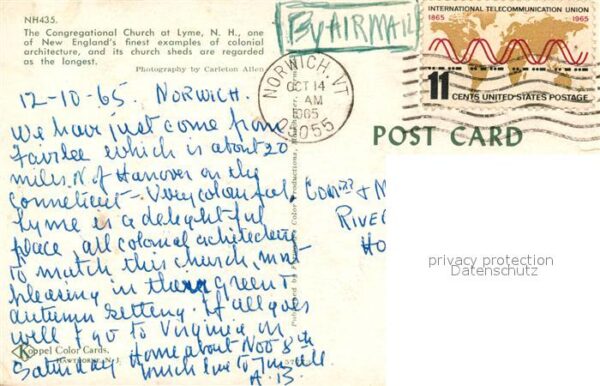 NH435.
The Congregational Church at Lyme, N. H., one
of New England's finest examples of colonial
architecture, and its church sheds are regarded
as the longest.
Photography by Carleton Allen
By AIRMAIL
INTERNATIONAL TELECOMMUNICATION UNION
1865 1965
11 CENTS UNITED STATES POSTAGE
NORWICH, VT
OCT 14
AM
1965
05055
POST CARD
12-10-65. NORWICH.
We have just come from
Fairlee which is about 20
miles N of Hanover on the
Connecticut - Very colourful
Lyme is a delightful
place, all colonial architecture
to match this church, most
pleasing in their green &
autumn setting. If all goes
well I go to Virginia on
Saturday Home about Nov 8th
much love to you all
A.B.
Koppel Color Cards,
HAWTHORNE, N. J.
RIVE
HO
privacy protection
Datenschutz